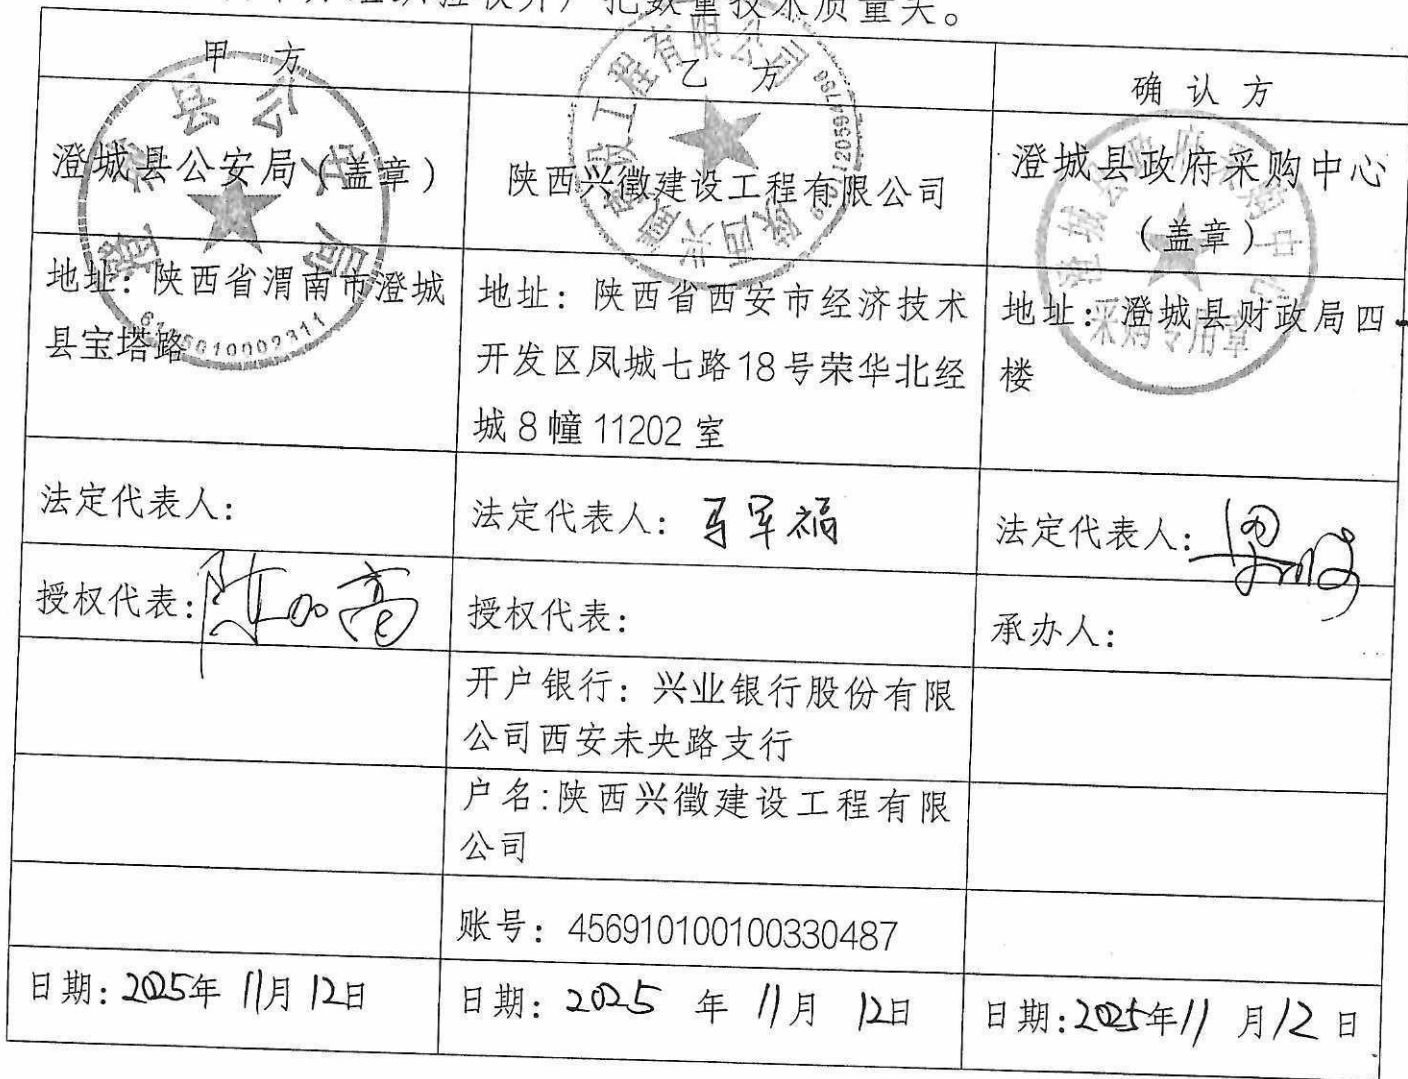 验收并严把数量技术质量关。
甲 方
乙 方
确 认 方
澄城县公安局（盖章）
陕西兴徽建设工程有限公司
澄城县政府采购中心
（盖章）
地址：陕西省渭南市澄城
县宝塔路
地址：陕西省西安市经济技术
开发区凤城七路18号荣华北经
城8幢11202室
地址：澄城县财政局四
楼
法定代表人：
法定代表人：
法定代表人：
授权代表：
授权代表：
承办人：
开户银行：兴业银行股份有限
公司西安未央路支行
户名：陕西兴徽建设工程有限
公司
账号：456910100100330487
日期：2025年11月12日
日期：2025 年 11月 12日
日期：2025年11 月12 日
澄城县公安局
陕西兴徽建设工程有限公司
澄城县政府采购中心
采购专用章